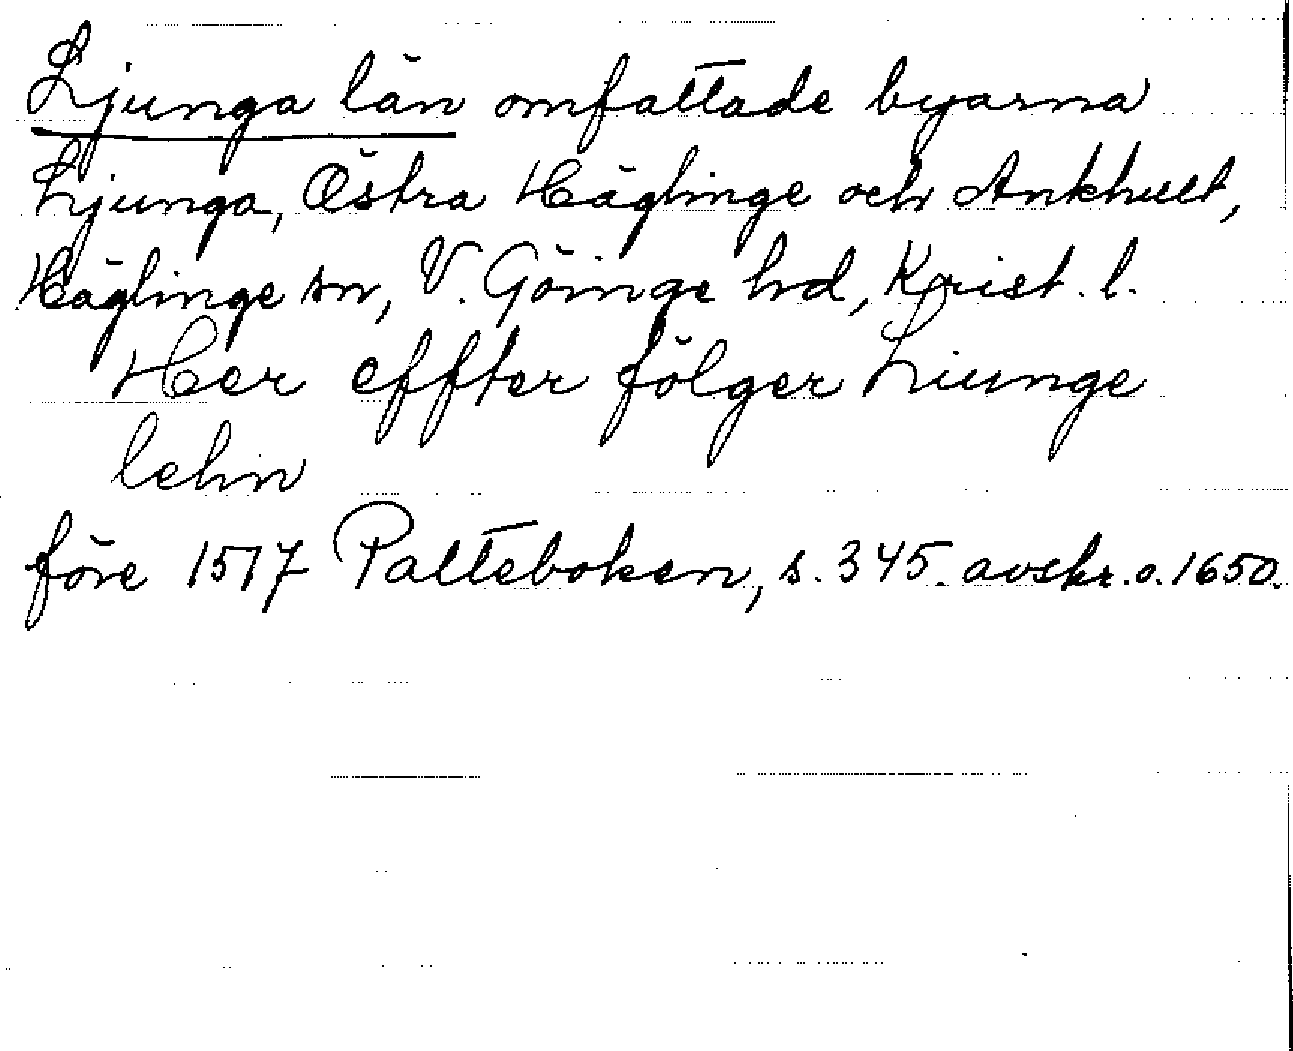 Ljunga län omfattade byarna
Ljunga, Östra Häglinge och Ankhult,
Häglinge sn, V. Göinge hd, Krist. l.
Her effter fölger Liunge
lehn
före 1517 Palteboken, s. 345. avskr. o. 1650.